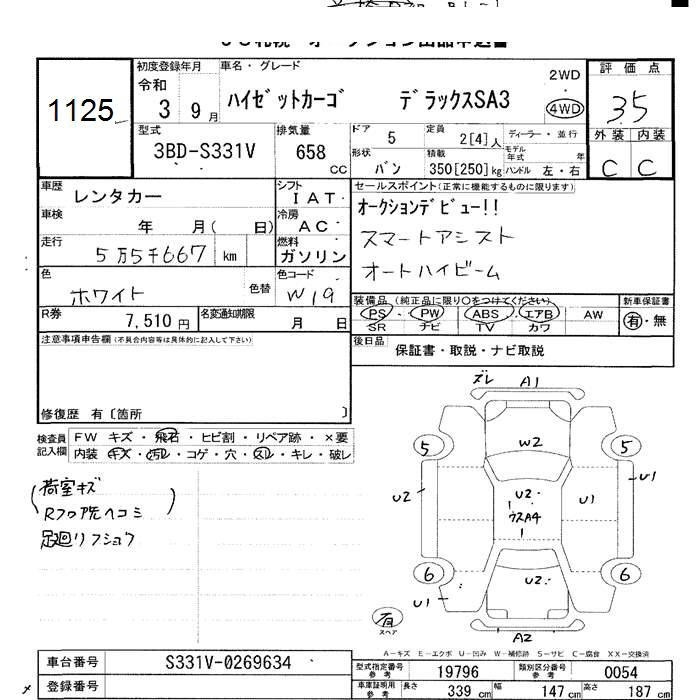 初度登録年月 車名・グレード 2WD 評価点
令和 3 9月 ハイゼットカーゴ デラックスSA3 4WD 3.5
1125
型式 3BD-S331V 排気量 658 CC
ドア 5 定員 2[4]人 ディーラー・並行
形状 バン 積載 350[250]kg モデル年式 年 ハンドル 左・右
外装 C 内装 C
車歴 レンタカー シフト IAT
車検 年 月( 日) 冷房 AC
走行 5万5千667 km 燃料 ガソリン
色 ホワイト 色替 色コード W19
R券 7,510円 名変通知期限 月 日
セールスポイント(正常に機能するものに限ります)
オークションデビュー!!
スマートアシスト
オートハイビーム
装備品(純正品に限り○をつけてください) 新車保証書
PS・PW ABS・エアB AW 有・無
SR ナビ TV カワ
後日品 保証書・取説・ナビ取説
注意事項申告欄(不具合内容等は具体的に記入して下さい)
修復歴 有〔箇所 〕
検査員記入欄 FW キズ・飛石・ヒビ割・リペア跡・×要
内装・キズ・汚レ・コゲ・穴・スレ・キレ・破レ
荷室キズ
Rフロア先ヘコミ
足廻リフショク
ズレ A1
5 W2 5
U2 U2 U1 U1
ウスA4
6 U2 6
U1
有 スペア
A2
A-キズ E-エクボ U-凹み W-補修跡 S-サビ C-腐食 XX-交換済
車台番号 S331V-0269634
登録番号
型式指定番号 参考 19796 類別区分番号 参考 0054
車庫証明用 参考 長さ 339 cm 幅 147 cm 高さ 187 cm